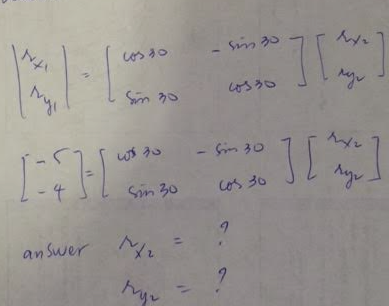 [r_x1 r_y1] = [cos30 -sin30 sin30 cos30] [r_x2 r_y2]
[-5 -4] = [cos30 -sin30 sin30 cos30] [r_x2 r_y2]
answer r_x2 = ?
r_y2 = ?